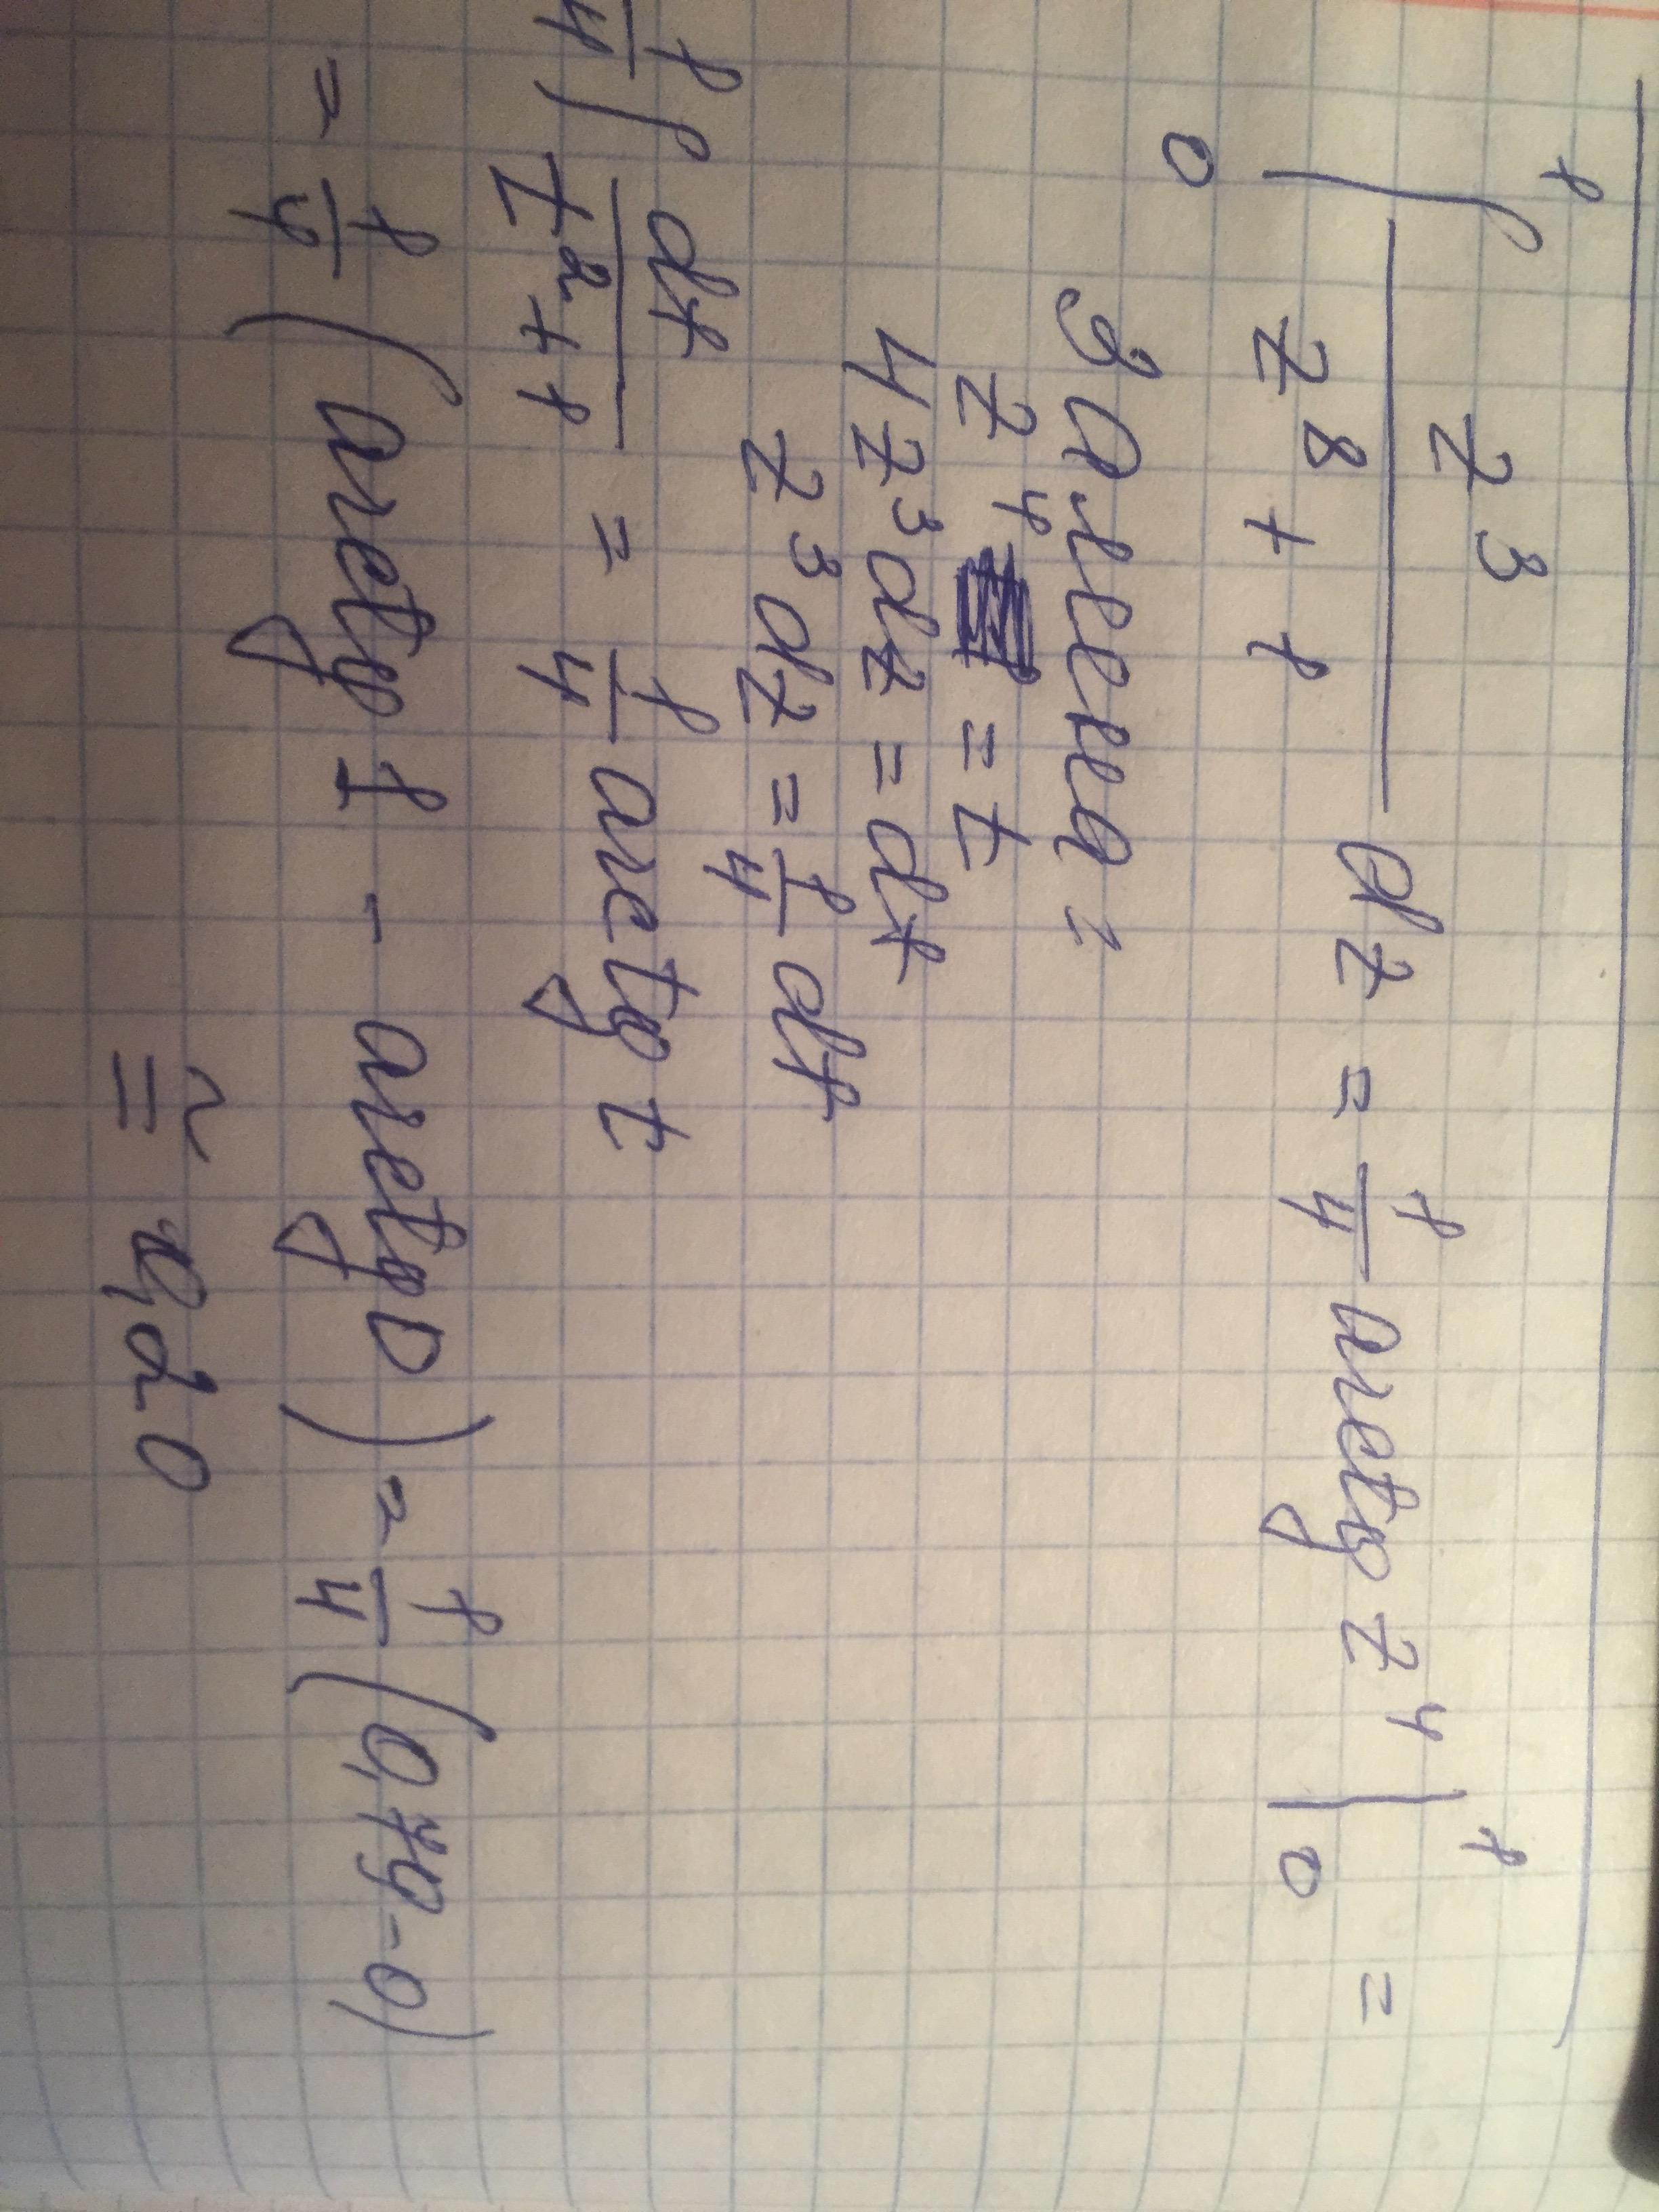 ∫₀¹ z³/(z⁸ + 1) dz = 1/4 arctg z⁴ |₀¹ =
Замена:
z⁴ = t
4z³dz = dt
z³dz = 1/4 dt
1/4 ∫ dt/(t² + 1) = 1/4 arctg t
= 1/4 (arctg 1 - arctg 0) = 1/4 (0,79-0)
≅ 0,20